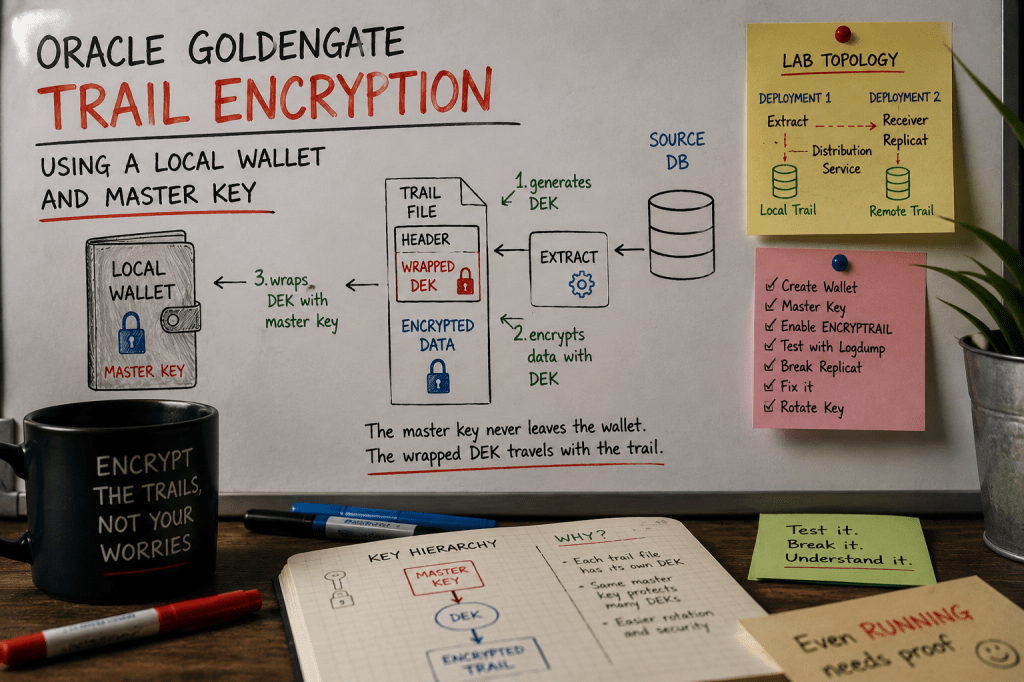 ORACLE GOLDENGATE
TRAIL ENCRYPTION
USING A LOCAL WALLET
AND MASTER KEY
LOCAL
WALLET
MASTER KEY
3. wraps
DEK with
master key
TRAIL
FILE
HEADER
WRAPPED
DEK
ENCRYPTED
DATA
1. generates
DEK
EXTRACT
2. encrypts
data with
DEK
SOURCE
DB
The master key never leaves the wallet.
The wrapped DEK travels with the trail.
LAB TOPOLOGY
DEPLOYMENT 1 DEPLOYMENT 2
Extract Receiver
Replicat
Distribution
Service
Local Trail Remote Trail
☑ Create Wallet
☑ Master Key
☑ Enable ENCRYPTRAIL
☑ Test with Logdump
☑ Break Replicat
☑ Fix it
☑ Rotate Key
ENCRYPT
THE TRAILS,
NOT YOUR
WORRIES
KEY HIERARCHY
MASTER
KEY
DEK
ENCRYPTED
TRAIL
WHY?
• Each trail file
has its own DEK
• Same master
key protects
many DEKs
• Easier rotation
and security
Test it.
Break it.
Understand it.
Even RUNNING
needs proof